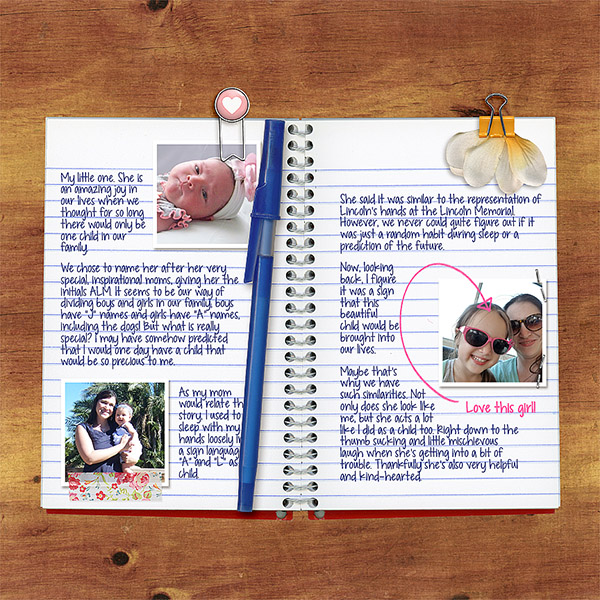 My little one. She is
an amazing joy in
our lives when we
thought for so long
there would only be
one child in our
family.
We chose to name her after her very
special, inspirational moms, giving her the
initials ALM. It seems to be our way of
dividing boys and girls in our family, boys
have "J" names and girls have "A" names,
including the dogs! But what is really
special? I may have somehow predicted
that I would one day have a child that
would be so precious to me.
As my mom
would relate the
story, I used to
sleep with my
hands loosely in
a sign language
"A" and "L" as
child.
She said it was similar to the representation of
Lincoln's hands at the Lincoln Memorial.
However, we never could quite figure out if it
was just a random habit during sleep or a
prediction of the future.
Now, looking
back, I figure
it was a sign
that this
beautiful
child would be
brought into
our lives.
Maybe that's
why we have
such similarities. Not
only does she look like
me, but she acts a lot
like I did as a child too. Right down to the
thumb sucking and little mischievous
laugh when she's getting into a bit of
trouble. Thankfully she's also very helpful
and kind-hearted.
Love this girl!